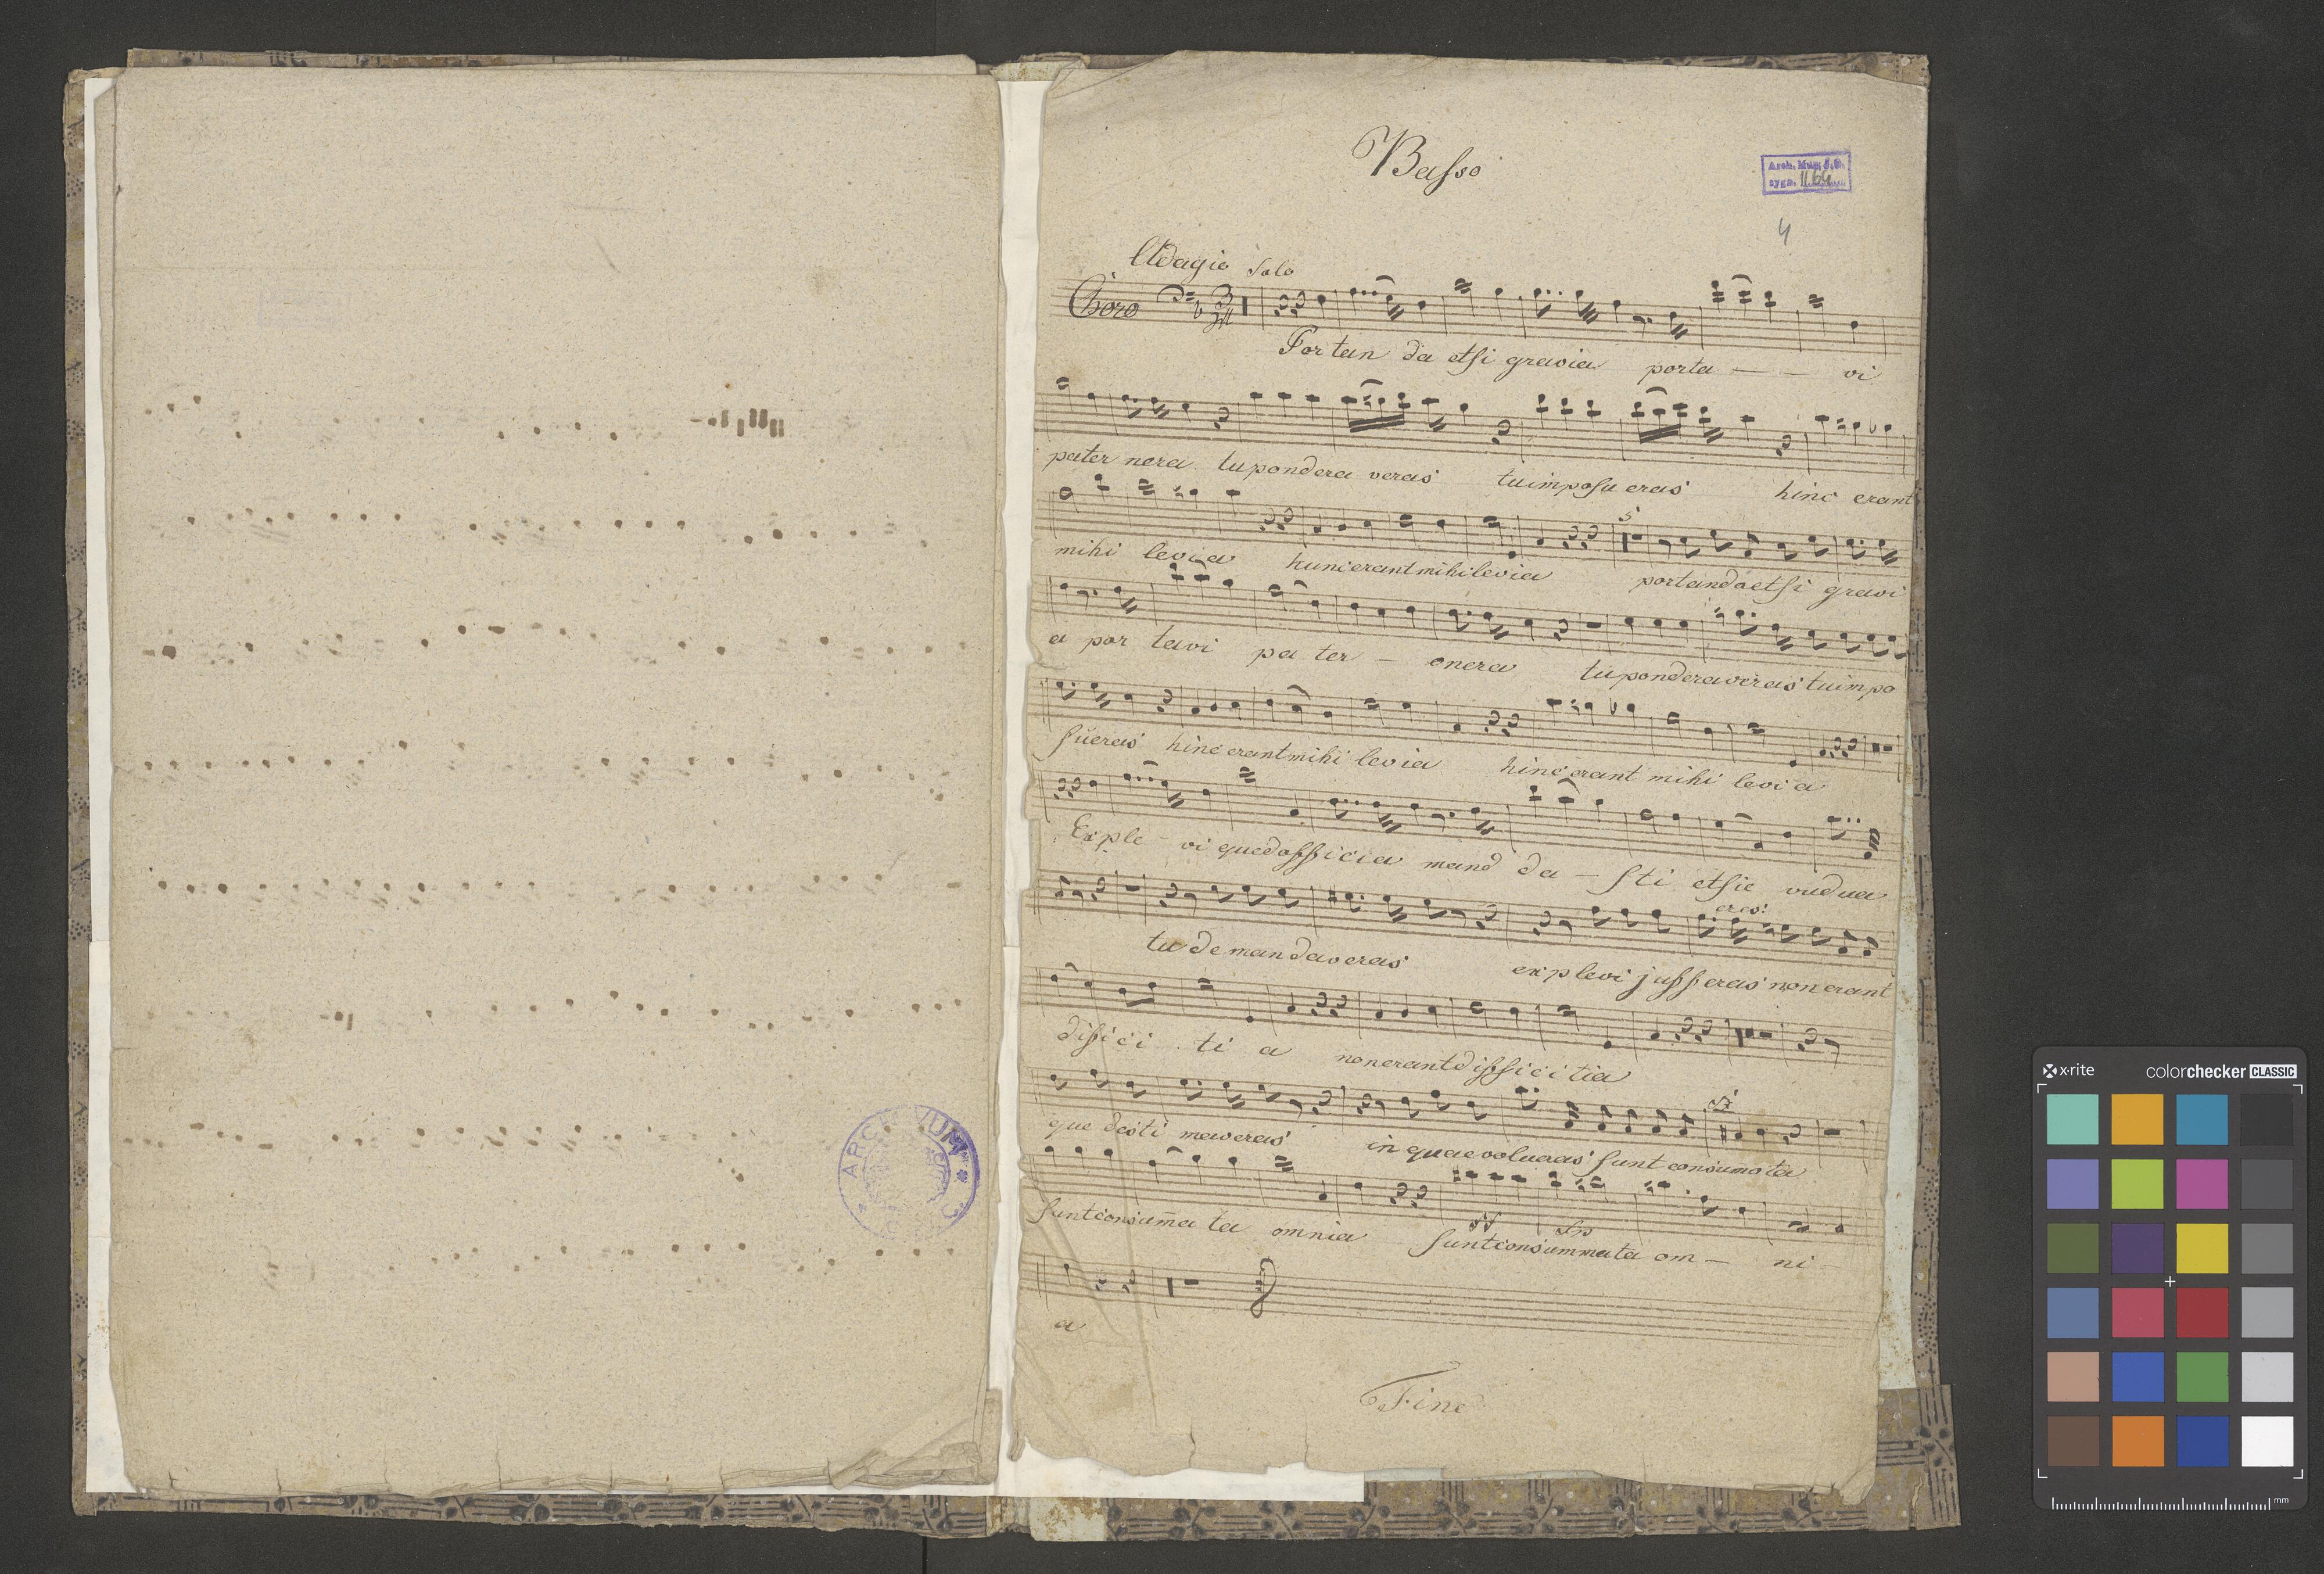 Basso
Arch. Muz. J.G.
sygn. II 64
4
Adagio Solo
Choro
Portan da etsi gravia porta — — vi
pater nera tuponderaveras tuimposueras hinc erant
mihi levia huncerantmihilevia portandaetsi gravi
a por tavi pa ter — onera tuponderaveras tuimpo
sueras hinc erantmihi levia hinc erant mihi levia
Exple — vi quedofficia mand da — sti etsie
cres:
tu demandaveras explevi jusseras nonerant
diffici ti a nonerantdifficitia
que desti naveras in quaevolueras sunt consumata
sunt consumata omnia sunt consummata om — ni —
ff fp
a
Fine
ARCHIVUM
x-rite colorchecker CLASSIC
mm